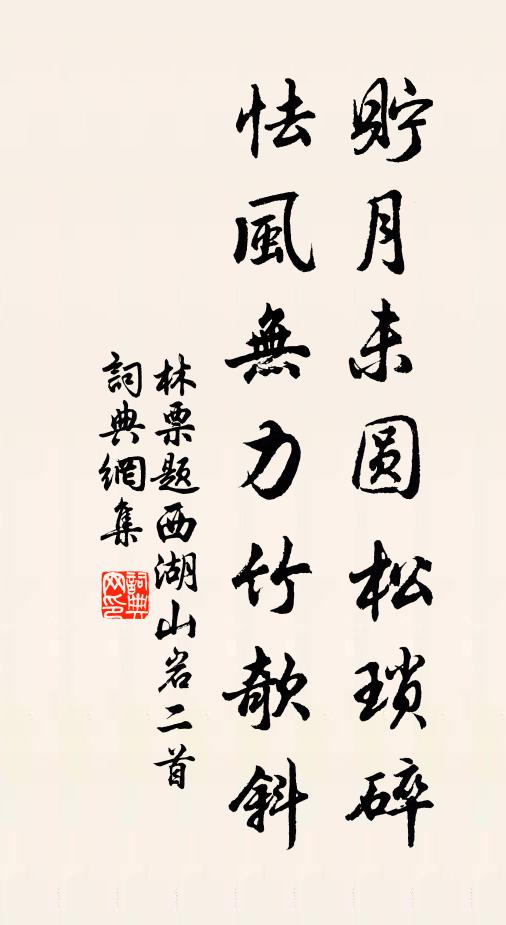 貯月未圆松瑣碎
怯風無力竹欹斜
林票题西湖山岩二首
詞典網集
詞典网印